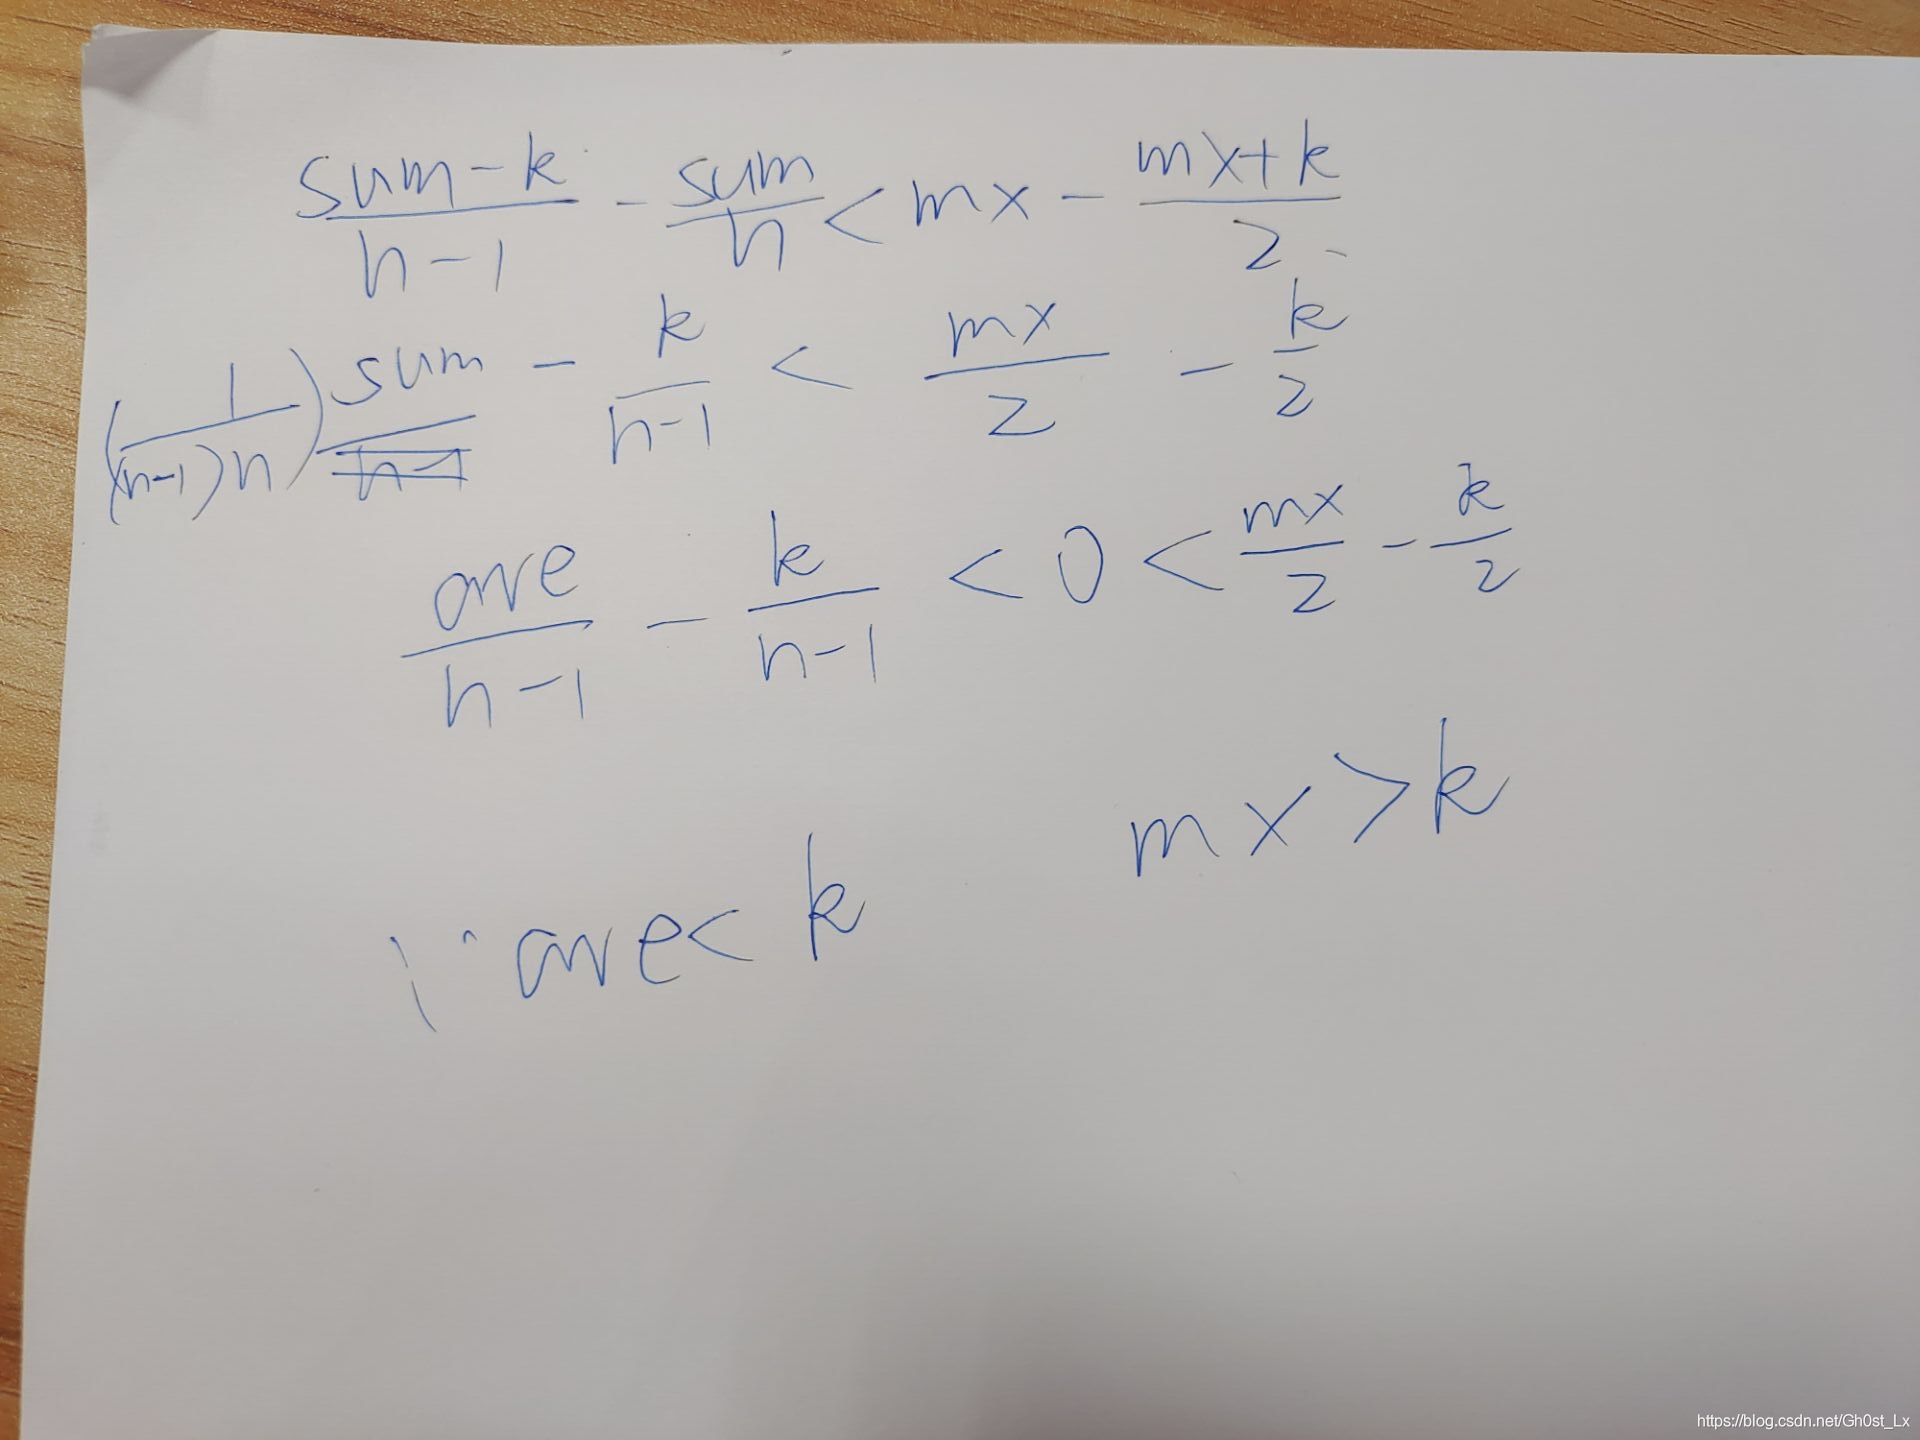 (sum-k)/(n-1) - sum/n < mx - (mx+k)/2
(1/((n-1)n)) sum - k/(n-1) < mx/2 - k/2
ave/(n-1) - k/(n-1) < 0 < mx/2 - k/2
mx > k
∵ ave < k
https://blog.csdn.net/Gh0st_Lx